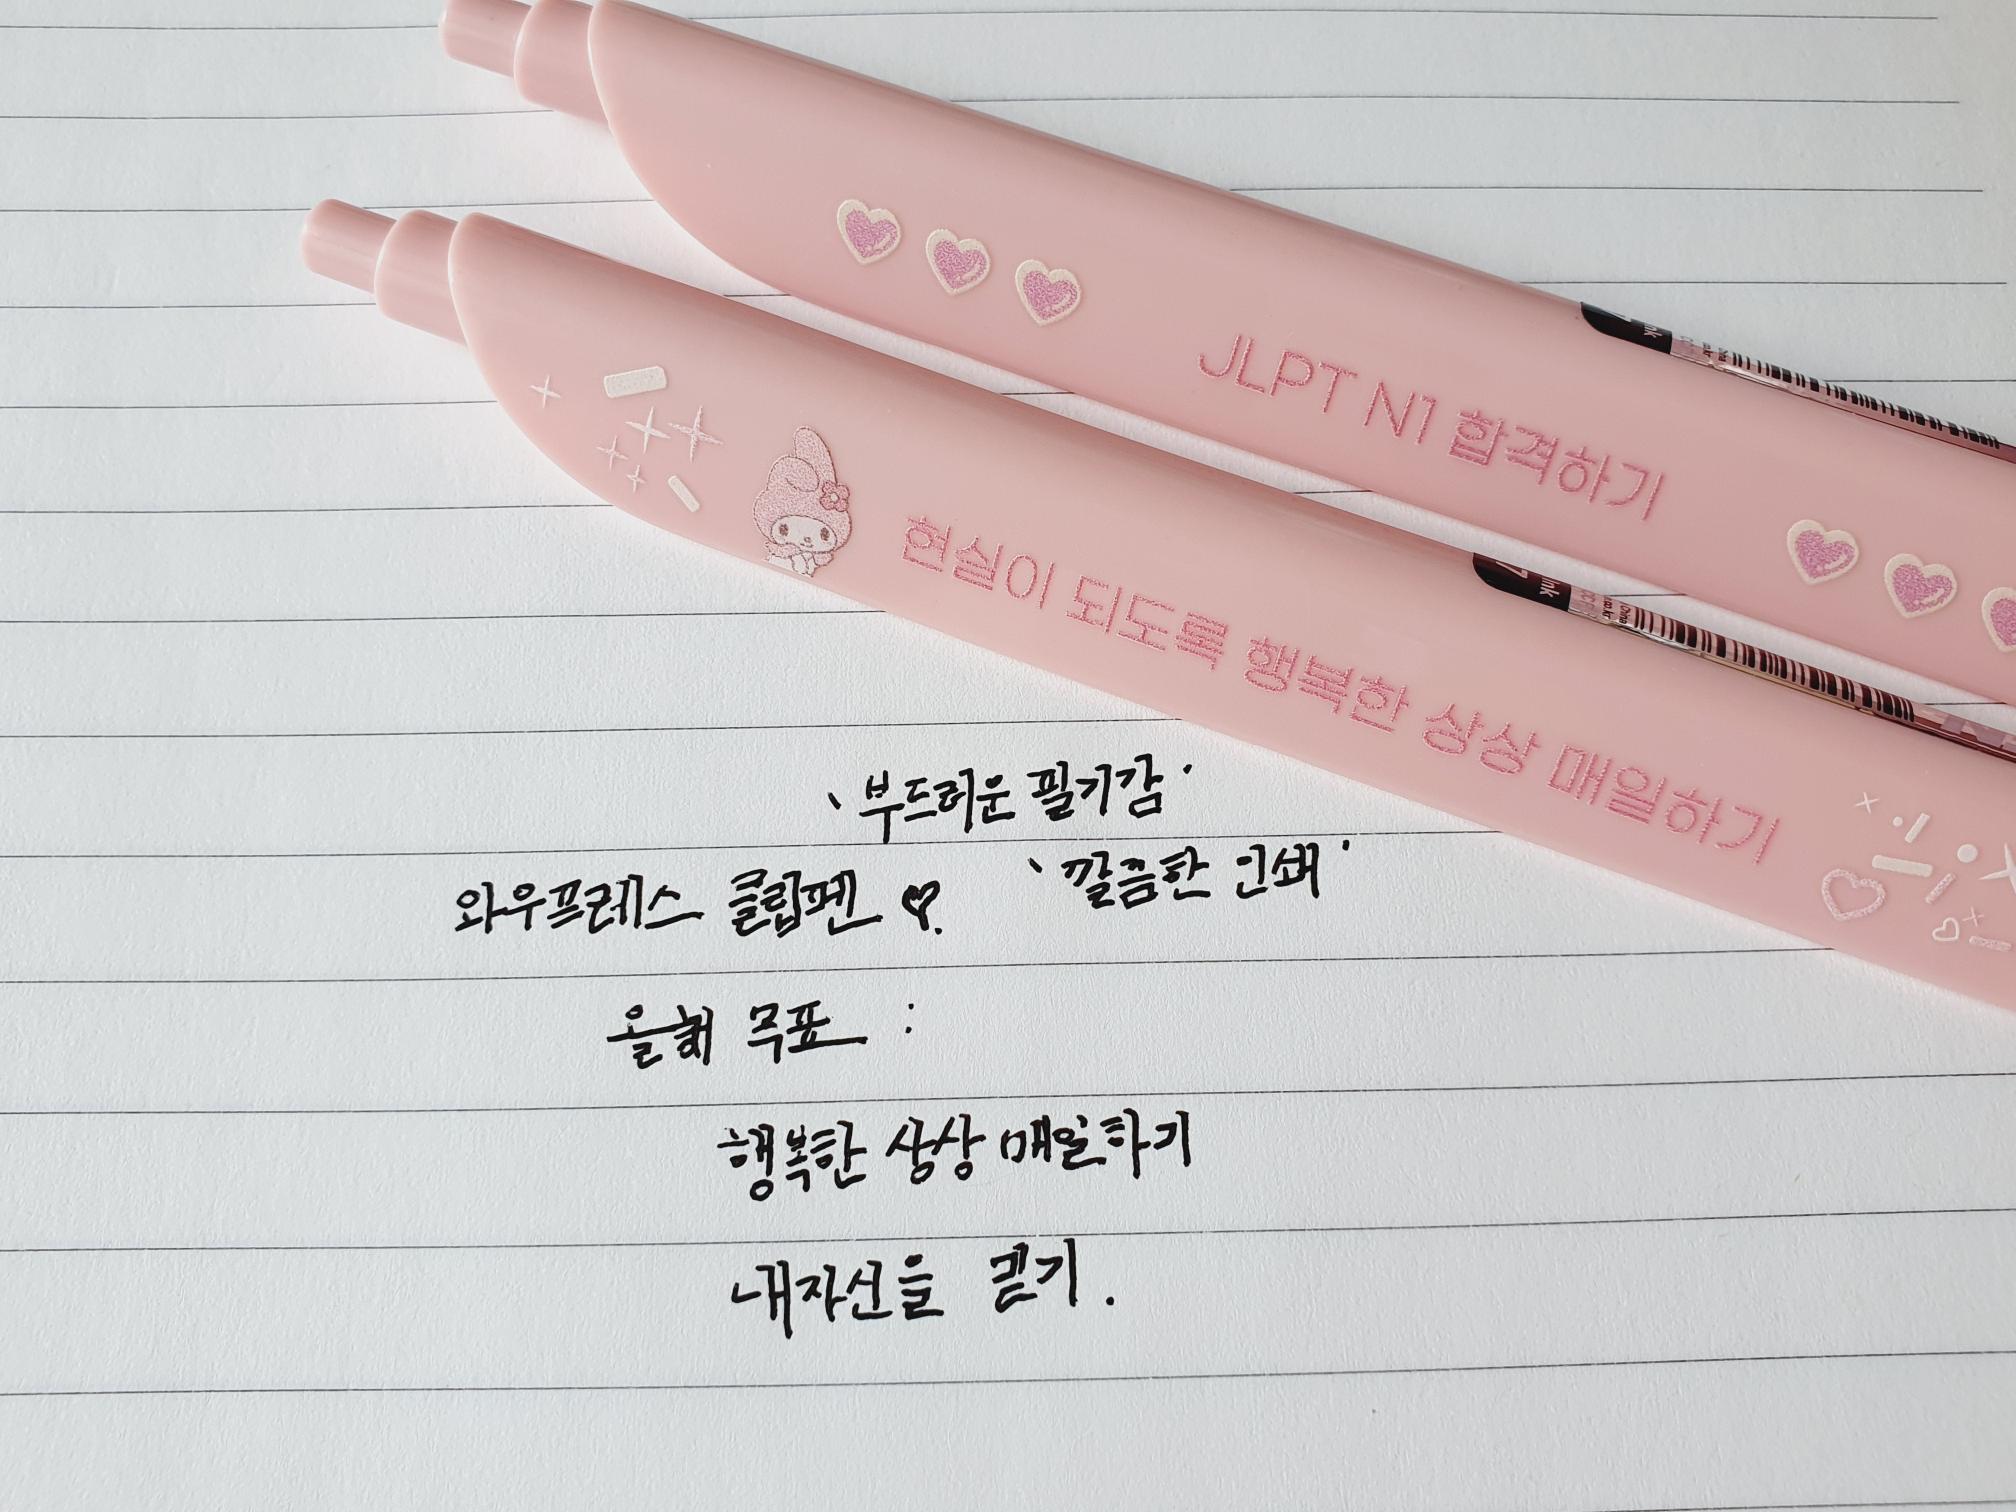 JLPT N1 합격하기
현실이 되도록 행복한 상상 매일하기
'부드러운 필기감'
와우프레스 클립펜 ♥. '깔끔한 인쇄'
올해 목표 :
행복한 상상 매일하기
내자신을 믿기.